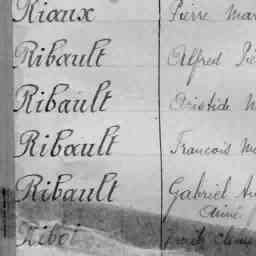 Rioux Pierre Mar
Ribault Alfred Pie
Ribault Aristide M
Ribault Francois M
Ribault Gabriel Au
Aimé
Ribot